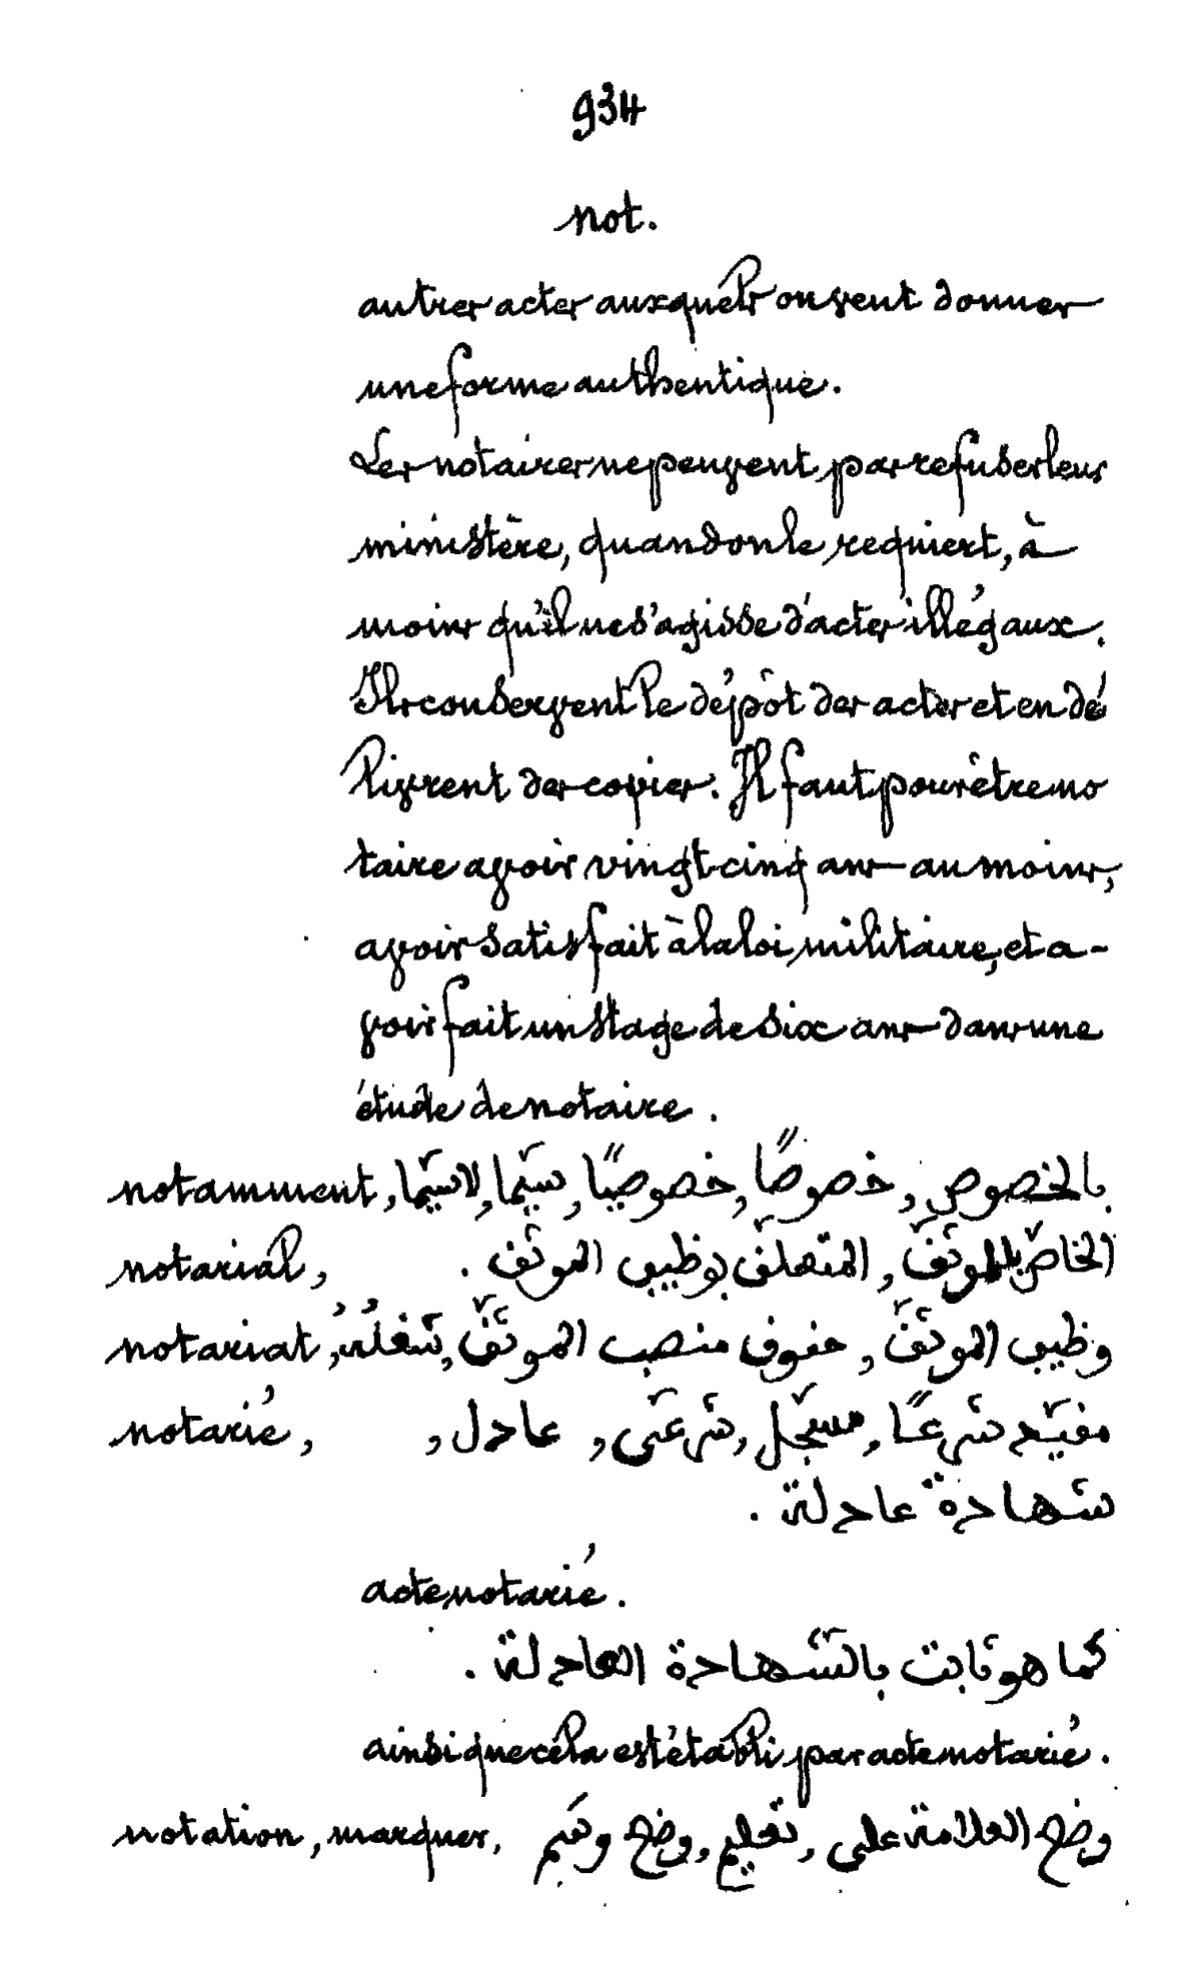 934
not.
autres actes auxquels on veut donner
une forme authentique.
Les notaires ne peuvent pas refuser leur
ministère, quand on le requiert, à
moins qu'il ne s'agisse d'actes illégaux.
Ils conservent le dépôt des actes et en dé
livrent des copies. Il faut pour être no
taire avoir vingt-cinq ans au moins,
avoir satisfait à la loi militaire, et a-
voir fait un stage de six ans dans une
étude de notaire.
notamment, بالخصوص, خصوصًا, خصوصيًّا, سيّما, لاسيّما,
notarial, الخاصّ بالموثّق, المتعلّق بوظيف الموثّق.
notariat, وظيف الموثّق, حقوق منصب الموثّق, شغلُهُ,
notarié, مقيّد شرعًا, مسجّل, شرعّى, عادل,
شهادة عادلة.
acte notarié.
كما هو ثابت بالشّهادة العادلة.
ainsi que cela est établi par acte notarié.
notation, marquer, وضع العلامة على, تعليم, وضع وشم